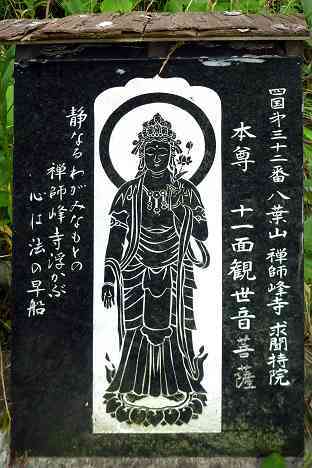 四国第三十二番八葉山 禅師峰寺 求聞持院
本尊 十一面観世音菩薩
静なる わがみなもとの
禅師峰寺 浮かぶ
心は 法の早船